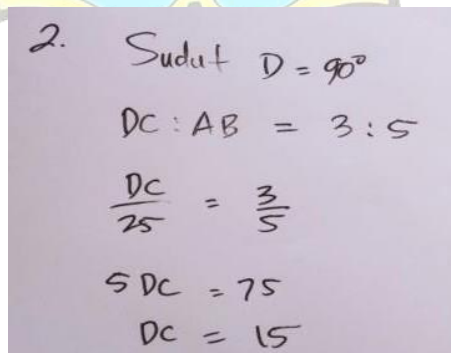 2. Sudut D = 90°
DC : AB = 3 : 5
DC/25 = 3/5
5 DC = 75
DC = 15